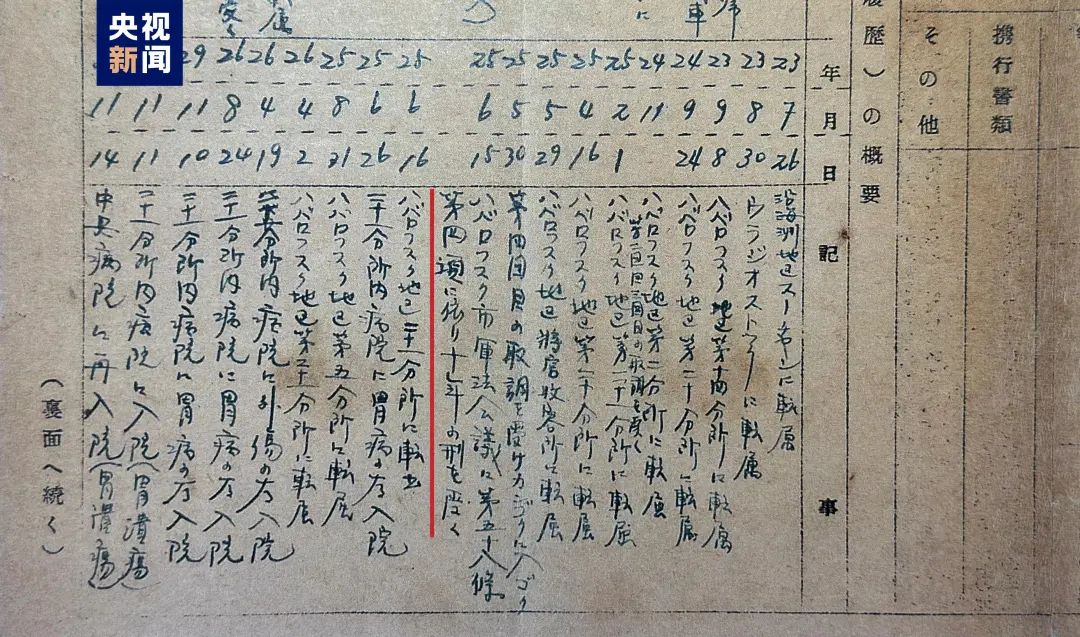 央视
新闻
携行書類
その他
履歴）の概要
年 月 日 記事
23 7 26 沿海洲地区スーチャンに転属
23 8 30 ウラジオストックに転属
23 9 8 ハバロフスク地区第十四分所に転属
24 9 24 ハバロフスク地区第二十分所に転属
24 11 ハバロフスク地区第二分所に転属
第一回目二回目の取調を受く
25 2 1 ハバロフスク地区第二十分所に転属
25 4 16 ハバロフスク地区第二十分所に転属
25 5 29 ハバロフスク地区将官收容所に転属
25 5 30 第四回目の取調を受け入ゴク
25 6 15 ハバロフスク市軍法会議に第五十八條
第四項に依り十五年の刑を受く
25 6 16 ハバロフスク地区二十一分所に転出
25 6 26 二十一分所内病院に胃病の為入院
25 8 21 ハバロフスク地区第五分所に転属
26 4 2 ハバロフスク地区第二十一分所に転属
26 4 19 二十一分所内病院に外傷の為入院
26 8 24 二十一分所内病院に胃病の為入院
29 11 10 二十一分所内病院に胃病の為入院
11 11 二十一分所内病院に入院（胃潰瘍）
11 14 中央病院に再入院（胃潰瘍）
（裏面へ続く）